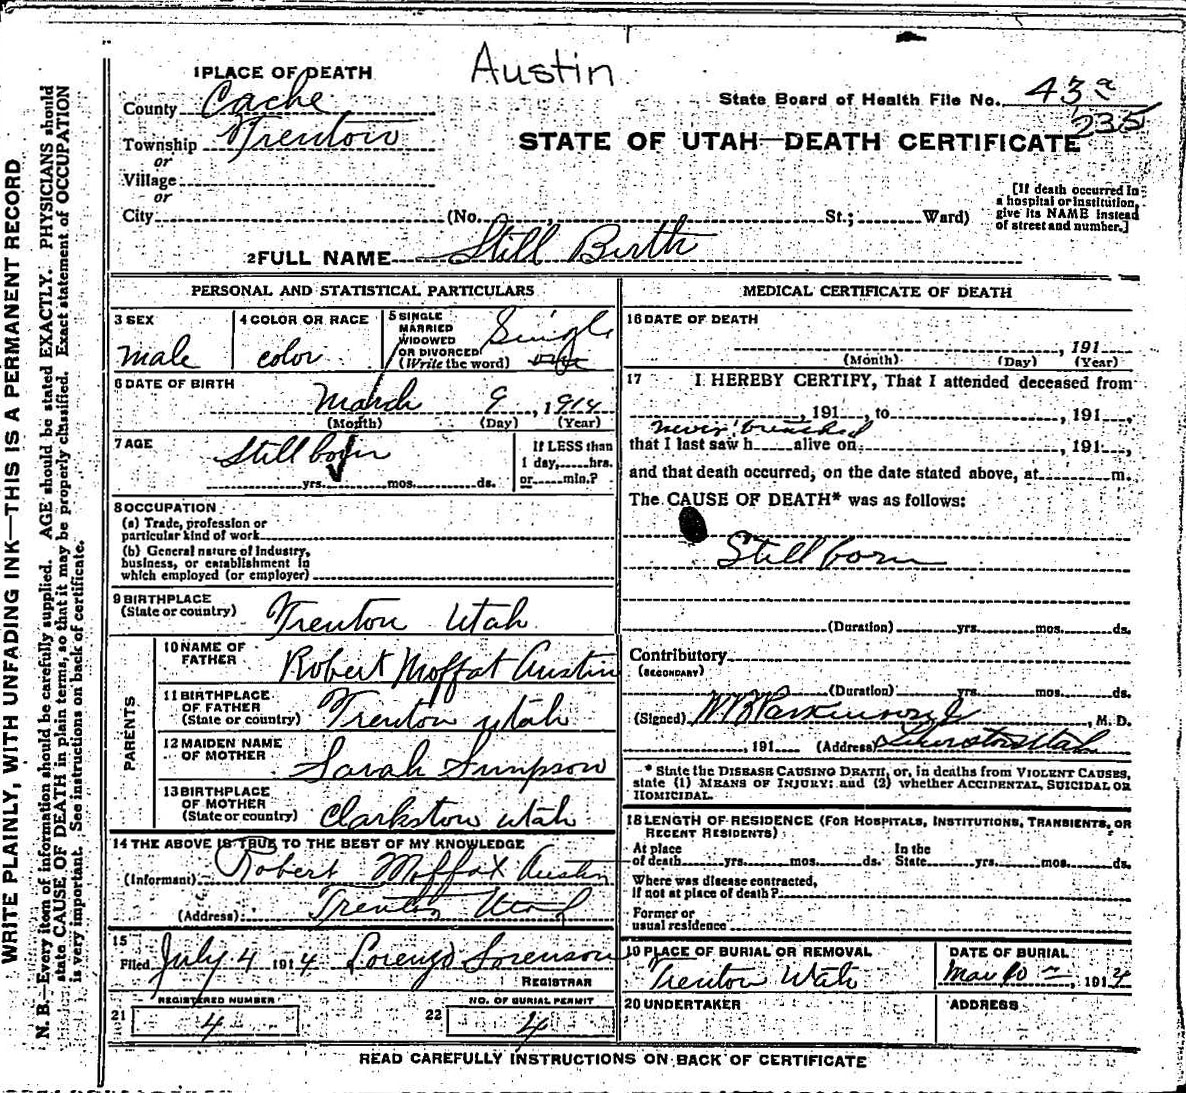 Austin
1 PLACE OF DEATH
County Cache
State Board of Health File No. 43a
235
Township Trenton
STATE OF UTAH—DEATH CERTIFICATE
or
Village
or
City (No. , St.; Ward)
[If death occurred in a hospital or institution, give its NAME instead of street and number.]
2 FULL NAME Still Birth
WRITE PLAINLY, WITH UNFADING INK—THIS IS A PERMANENT RECORD
N. B.—Every item of information should be carefully supplied. AGE should be stated EXACTLY. PHYSICIANS should
state CAUSE OF DEATH in plain terms, so that it may be properly classified. Exact statement of OCCUPATION
is very important. See instructions on back of certificate.
PERSONAL AND STATISTICAL PARTICULARS
3 SEX
male
4 COLOR OR RACE
color
5 SINGLE
MARRIED
WIDOWED
OR DIVORCED
(Write the word)
Single
6 DATE OF BIRTH
March 9, 1914
(Month) (Day) (Year)
7 AGE
Still born
yrs. mos. ds.
If LESS than
1 day, hrs.
or min.?
8 OCCUPATION
(a) Trade, profession or
particular kind of work
(b) General nature of industry,
business, or establishment in
which employed (or employer)
9 BIRTHPLACE
(State or country) Trenton Utah
PARENTS
10 NAME OF
FATHER Robert Moffat Austin
11 BIRTHPLACE
OF FATHER
(State or country) Trenton Utah
12 MAIDEN NAME
OF MOTHER Sarah Simpson
13 BIRTHPLACE
OF MOTHER
(State or country) Clarkston Utah
14 THE ABOVE IS TRUE TO THE BEST OF MY KNOWLEDGE
(Informant) Robert Moffat Austin
(Address) Trenton Utah
15
Filed July 4 1914 Lorenzo Sorenson
REGISTRAR
REGISTERED NUMBER
21 4
NO. OF BURIAL PERMIT
22 4
MEDICAL CERTIFICATE OF DEATH
16 DATE OF DEATH
, 191
(Month) (Day) (Year)
17 I HEREBY CERTIFY, That I attended deceased from
, 191 , to , 191 ,
never breathed
that I last saw h alive on , 191 ,
and that death occurred, on the date stated above, at m.
The CAUSE OF DEATH* was as follows:
Still born
(Duration) yrs. mos. ds.
Contributory
(SECONDARY)
(Duration) yrs. mos. ds.
(Signed) W B Parkinson Jr , M. D.
, 191 (Address) Lewiston Utah
* State the DISEASE CAUSING DEATH, or, in deaths from VIOLENT CAUSES,
state (1) MEANS OF INJURY; and (2) whether ACCIDENTAL, SUICIDAL OR
HOMICIDAL.
18 LENGTH OF RESIDENCE (FOR HOSPITALS, INSTITUTIONS, TRANSIENTS, OR
RECENT RESIDENTS)
At place
of death yrs. mos. ds.
In the
State yrs. mos. ds.
Where was disease contracted,
if not at place of death?
Former or
usual residence
19 PLACE OF BURIAL OR REMOVAL
Trenton Utah
DATE OF BURIAL
Mar 10 , 1914
20 UNDERTAKER
ADDRESS
READ CAREFULLY INSTRUCTIONS ON BACK OF CERTIFICATE